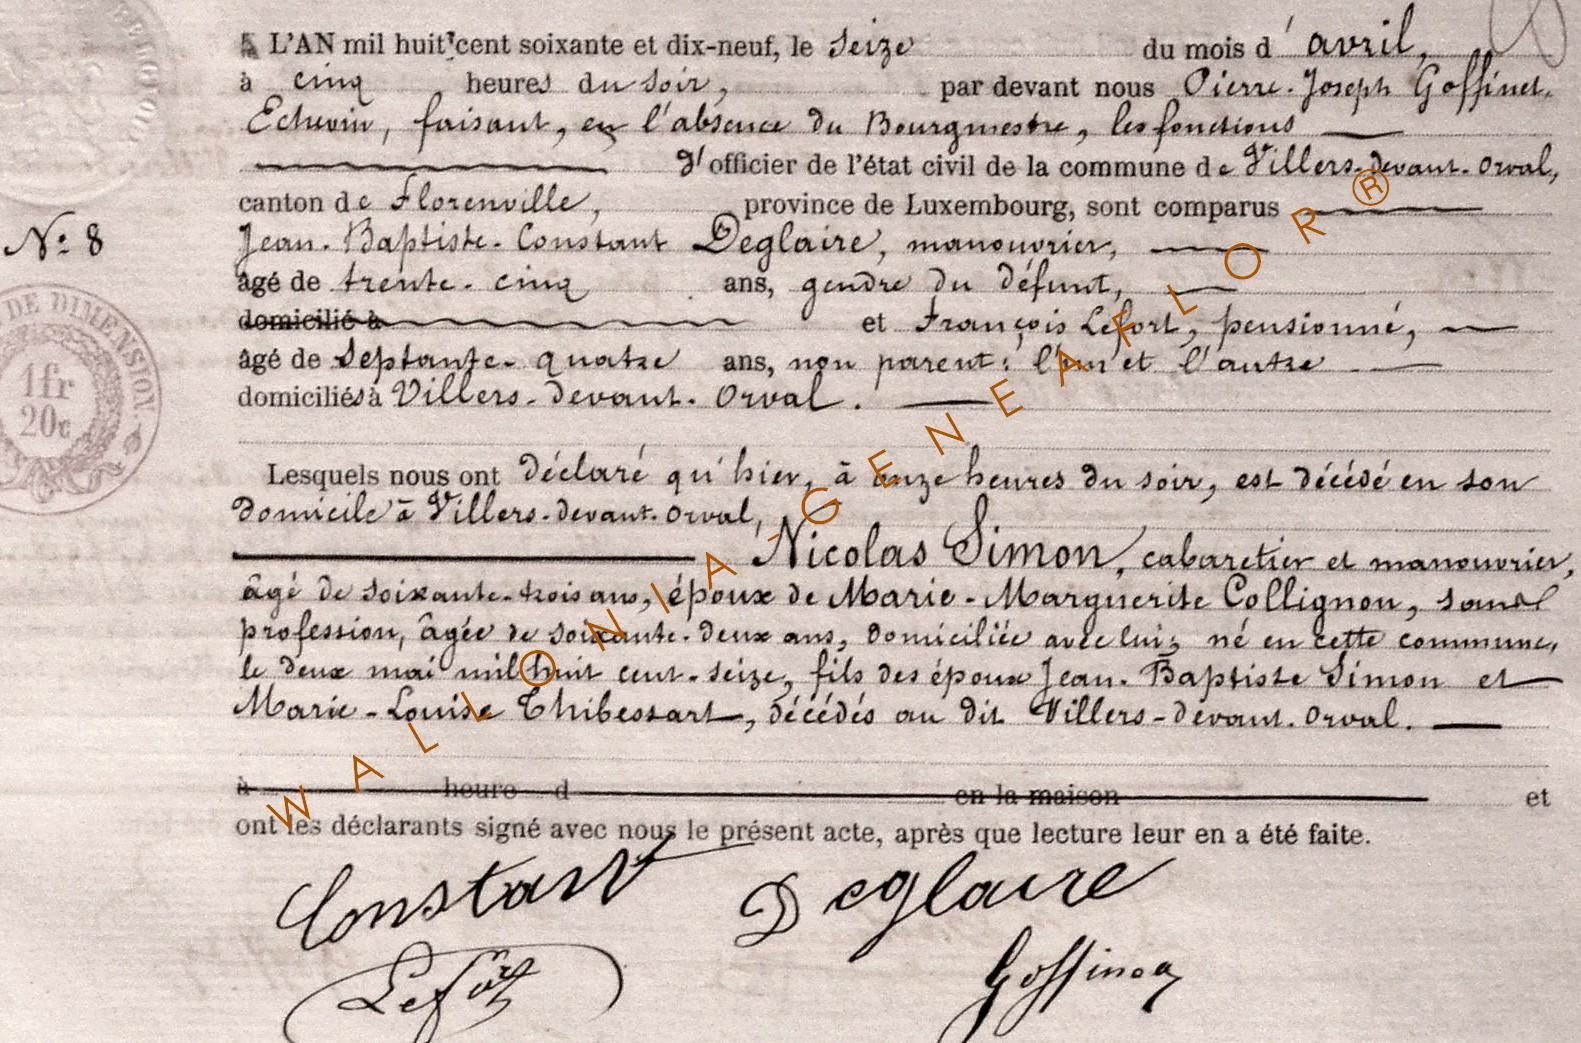 L'AN mil huit cent soixante et dix-neuf, le seize du mois d'avril,
à cinq heures du soir, par devant nous Pierre-Joseph Goffinet,
Echevin, faisant, en l'absence du Bourgmestre, les fonctions
d'officier de l'état civil de la commune de Villers-devant-Orval,
canton de Florenville, province de Luxembourg, sont comparus
N° 8
Jean-Baptiste-Constant Deglaire, manouvrier,
âgé de trente-cinq ans, gendre du défunt,
domicilié à et François Lefort, pensionné,
DE DIMENSION.
1fr
20c
âgé de septante-quatre ans, non parent; l'un et l'autre
domiciliés à Villers-devant-Orval.
Lesquels nous ont déclaré qu'hier, à onze heures du soir, est décédé en son
domicile à Villers-devant-Orval,
Nicolas Simon, cabaretier et manouvrier,
âgé de soixante-trois ans, époux de Marie-Marguerite Collignon, sans
profession, âgée de soixante-deux ans, domiciliée avec lui; né en cette commune,
le deux mai mil huit cent-seize, fils des époux Jean-Baptiste Simon et
Marie-Louise Thibessart, décédés au dit Villers-devant-Orval.
à heure d en la maison et
ont les déclarants signé avec nous le présent acte, après que lecture leur en a été faite.
Constant Deglaire
Lefort Goffinet
WALLONIA-GENEAFLOR®